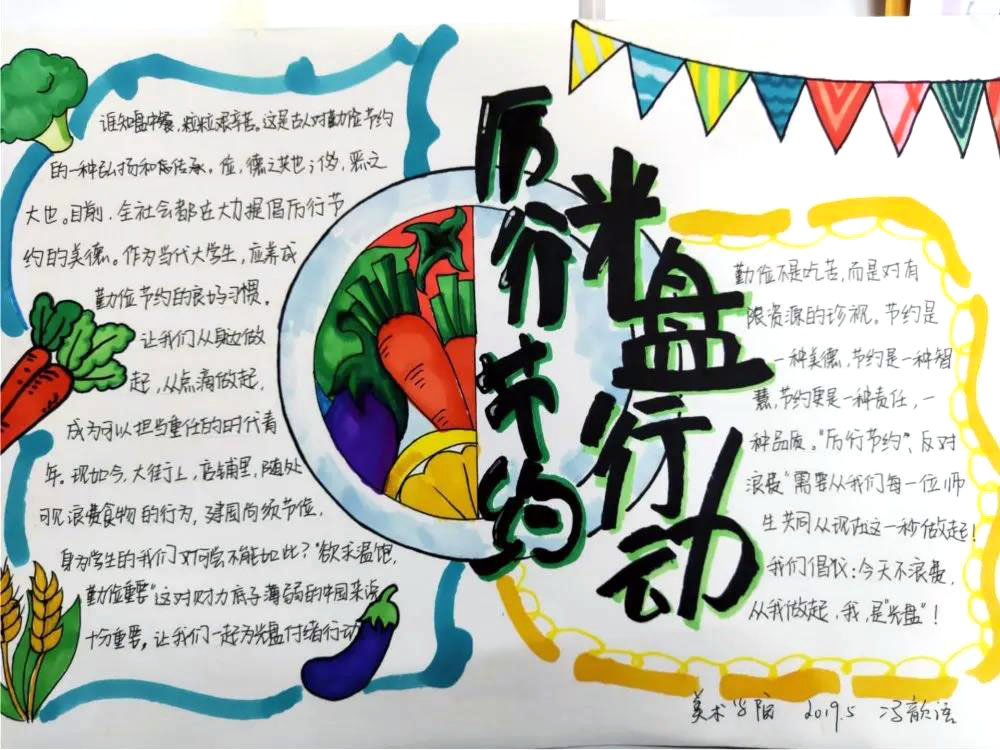 厉行节约
光盘行动
谁知盘中餐，粒粒艰辛苦。这是古人对勤俭节约
的一种弘扬和传承。俭，德之共也；侈，恶之
大也。目前，全社会都在大力提倡厉行节
约的美德。作为当代大学生，应养成
勤俭节约的良好习惯。
让我们从身边做
起，从点滴做起，
成为可以担当重任的时代青
年。现如今，大街上，店铺里，随处
可见浪费食物的行为，建国尚须节俭，
身为学生的我们又何尝不能如此？"欲求温饱，
勤俭重要"这对财力底子薄弱的中国来说
十分重要。让我们一起为光盘付诸行动
勤俭不是吃苦，而是对有
限资源的珍视。节约是
一种美德，节约是一种智
慧，节约更是一种责任，一
种品质。"厉行节约"、反对
浪费"需要从我们每一位师
生共同从现在这一秒做起！
我们倡议：今天不浪费，
从我做起，我是"光盘"！
美术学院 2019.5 冯歆语